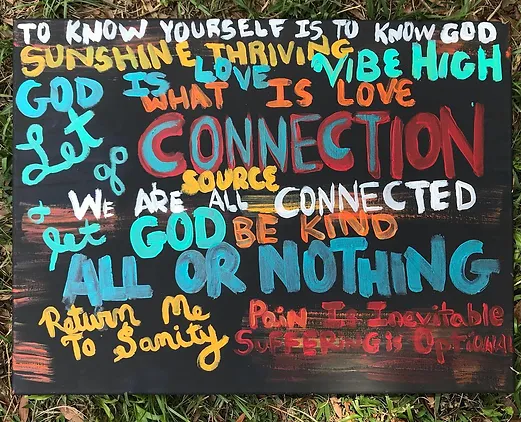 TO KNOW YOURSELF IS TO KNOW GOD
SUNSHINE THRIVING VIBE HIGH
GOD IS LOVE
WHAT IS LOVE
Let go
CONNECTION
SOURCE
WE ARE ALL CONNECTED
& let GOD BE KIND
ALL OR NOTHING
Return Me
To Sanity
Pain Is Inevitable
SUFFERING is Optional